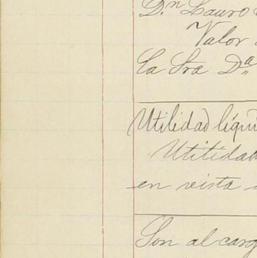 Dn Lauro
Valor
la Sra Da
Utilidad líqui
Utilidad
en vista
Son al carg